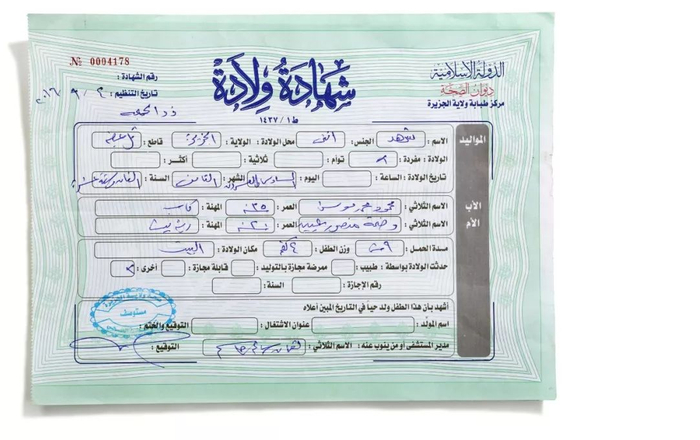 № 0004178
شهادة ولادة
الدولة الإسلامية
رقم الشهادة :
ديوان الصحة
تاريخ التنظيم : ٢ / ٩ / ٢٠١٦
مركز طبابة ولاية الجزيرة
ذو الحجة
ط١ / ١٤٣٧
المواليد
الاسم : شهد الجنس : انثى محل الولادة : الولاية : الجزيرة قاطع :
الولادة : مفردة : توأم : ثلاثية : أكثر :
تاريخ الولادة : الساعة : اليوم : السادس والعشرون الشهر : الثامن السنة :
الأب
الاسم الثلاثي : محمود محمد موسى العمر : ٣٥ المهنة : كاسب
الأم
الاسم الثلاثي : منصور العمر : ٢٠ المهنة : ربة بيت
مدة الحمل : ٩ وزن الطفل : ٤ كغم مكان الولادة : البيت
حدثت الولادة بواسطة : طبيب : ممرضة مجازة بالتوليد : قابلة مجازة : أخرى :
رقم الإجازة : السنة :
أشهد بأن هذا الطفل ولد حياً في التاريخ المبين أعلاه
اسم المولد : عنوان الاشتغال : التوقيع والختم :
مدير المستشفى أو من ينوب عنه : الاسم الثلاثي : التوقيع :